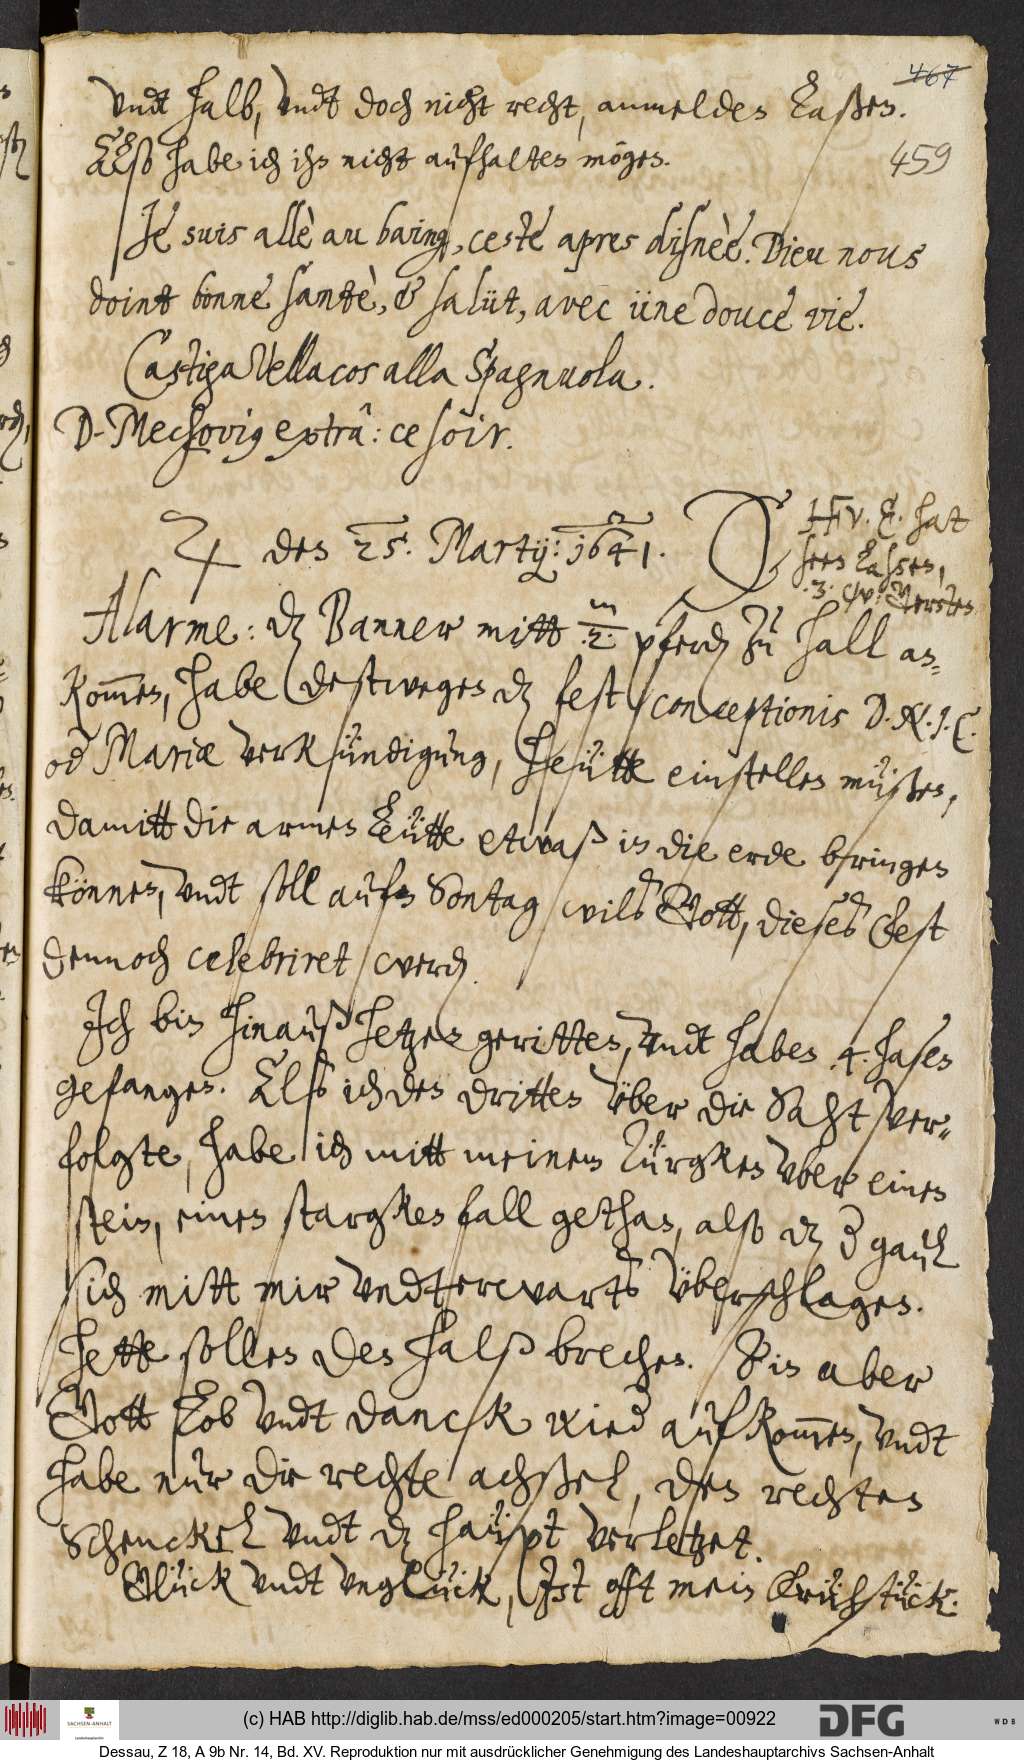 467
459
undt halb, undt doch nicht recht, anmelden laßen.
Alß habe ich ihn nicht aufhalten mögen.
Je suis allè au baing, ceste apres disnèe. Dieu nous
doint bonne santè, & salüt, avec üne douce vie.
Castiga Vellacos alla Spagnuola.
D. Mechovig extra: ce soir.
♃ den 25. Martij: 1641.
hat
sehen laßen,
3. Gersten
Alarme: dz Banner mitt 2 pferden zu Hall an=
kommen, habe destwegen dz fest conceptionis D. N. J. C.
od Mariæ verkündigung, heütte einstellen müßen,
damitt die armen leütte etwaß in die erde bringen
können, undt soll aufn Sontag wils Gott, dieses Fest
dennoch celebriret werden
Ich bin hinauß hetzen geritten, undt haben 4. hasen
gefangen. Alß ich den dritten über die Saht ver=
folgte, habe ich mitt meinem Türgken uber einen
stein, einen stargken fall gethan, also dz der gaul
sich mitt mir undterwarts überschlagen.
Hette sollen den halß brechen. Bin aber
Gott lob undt danck wieder aufkommen, undt
habe nur die rechte achßel, den rechten
Schenckel undt dz haüpt verletzet.
Glück undt unglück, Ist offt mein Frühstück.
(c) HAB http://diglib.hab.de/mss/ed000205/start.htm?image=00922
SACHSEN-ANHALT
DFG
WDB
Dessau, Z 18, A 9b Nr. 14, Bd. XV. Reproduktion nur mit ausdrücklicher Genehmigung des Landeshauptarchivs Sachsen-Anhalt